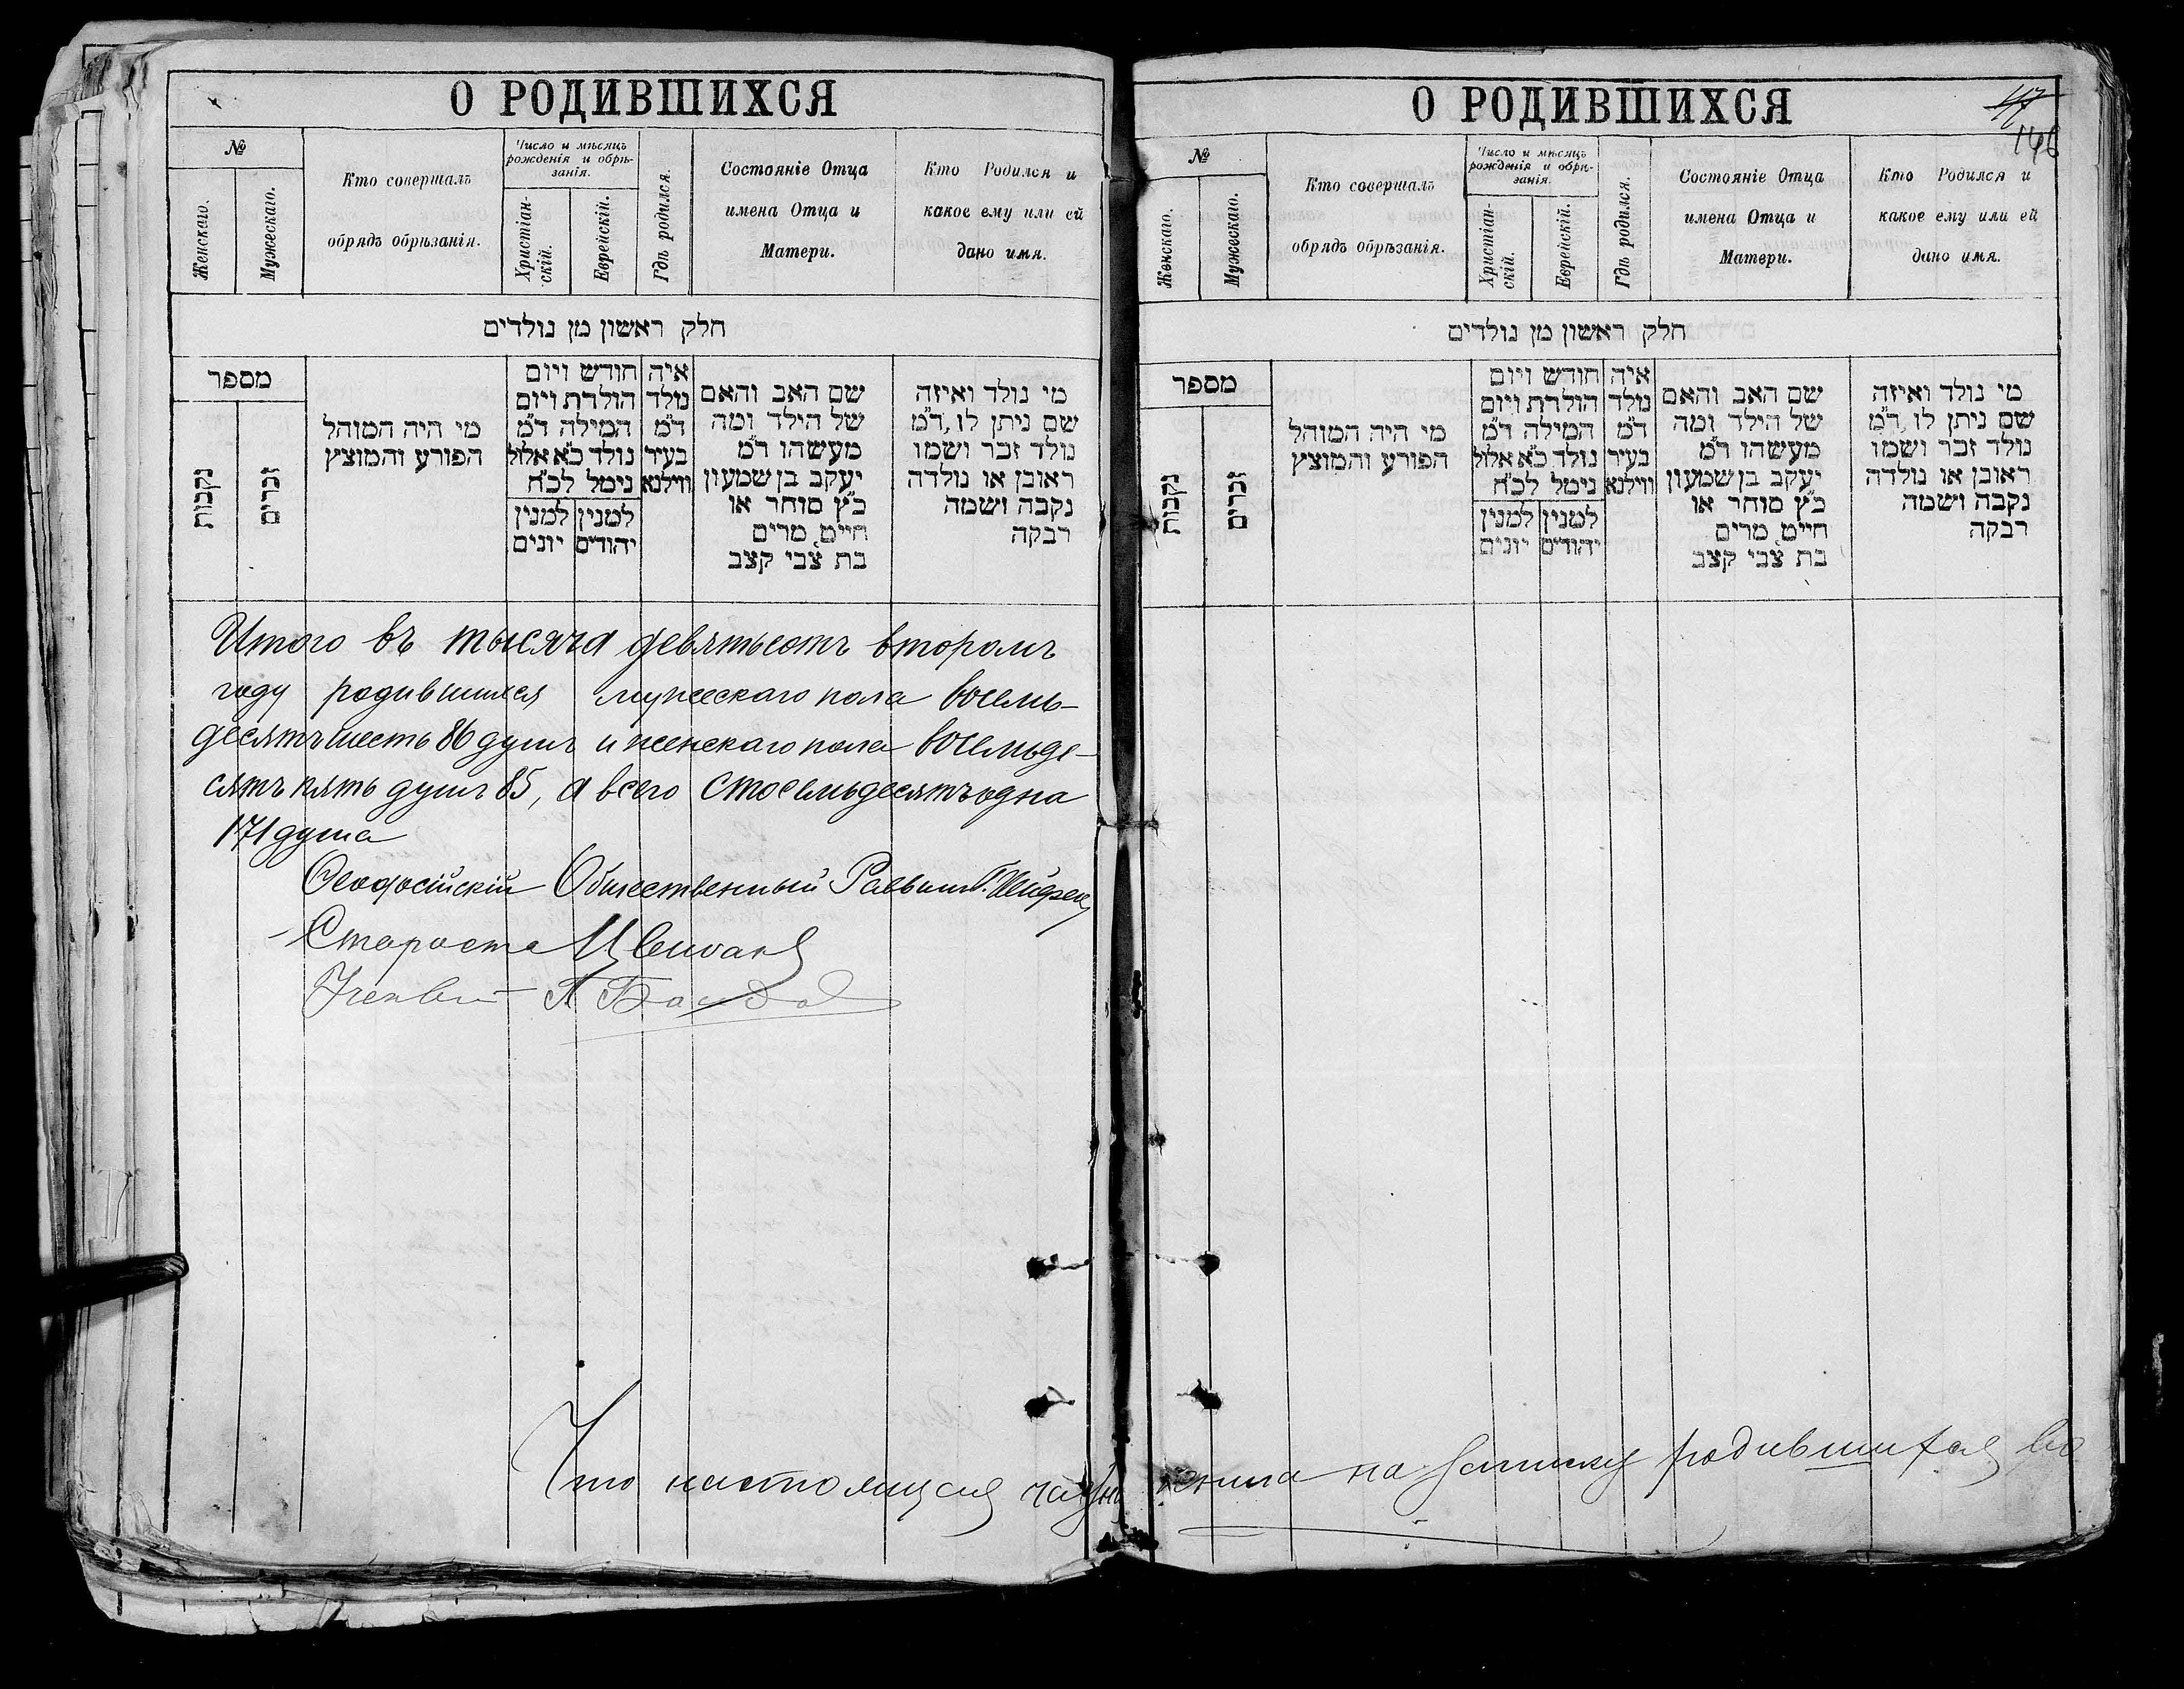 О РОДИВШИХСЯ
№
Женскаго.
Мужескаго.
Кто совершалъ
обрядъ обрѣзанія.
Число и мѣсяцъ
рожденія и обрѣ-
занія.
Христіан-
скій.
Еврейскій.
Гдѣ родился.
Состояніе Отца
имена Отца и
Матери.
Кто Родился и
какое ему или ей
дано имя.
חלק ראשון מן נולדים
מספר
נקבות
זכרים
מי היה המוהל
הפורע והמוצץ
חודש ויום
הולדת ויום
המילה ד״מ
נולד כ״א אלול
נימל לכ״ח
למנין יהודים
למנין יונים
איה
נולד
ד״מ
בעיר
ווילנא
שם האב והאם
של הילד ומה
מעשהו ד״מ
יעקב בן שמעון
כ״ץ סוחר או
חייט, מרים
בת צבי קצב
מי נולד ואיזה
שם ניתן לו, ד״מ
נולד זכר ושמו
ראובן או נולדה
נקבה ושמה
רבקה
Итого въ тысяча девятьсотъ второмъ
году родившихся мужескаго пола восемь-
десятъ шесть 86 душъ и женскаго пола восемьде-
сятъ пять душъ 85, а всего сто семьдесятъ одна
171 душа
Ѳеодосійскій Общественный Раввинъ
Староста
О РОДИВШИХСЯ
146
№
Женскаго.
Мужескаго.
Кто совершалъ
обрядъ обрѣзанія.
Число и мѣсяцъ
рожденія и обрѣ-
занія.
Христіан-
скій.
Еврейскій.
Гдѣ родился.
Состояніе Отца
имена Отца и
Матери.
Кто Родился и
какое ему или ей
дано имя.
חלק ראשון מן נולדים
מספר
נקבות
זכרים
מי היה המוהל
הפורע והמוצץ
חודש ויום
הולדת ויום
המילה ד״מ
נולד כ״א אלול
נימל לכ״ח
למנין יהודים
למנין יונים
איה
נולד
ד״מ
בעיר
ווילנא
שם האב והאם
של הילד ומה
מעשהו ד״מ
יעקב בן שמעון
כ״ץ סוחר או
חייט, מרים
בת צבי קצב
מי נולד ואיזה
שם ניתן לו, ד״מ
נולד זכר ושמו
ראובן או נולדה
נקבה ושמה
רבקה
Что настоящая книга на записку родившихся